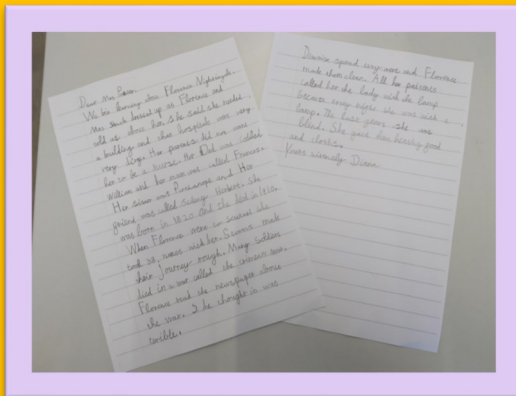 Dear Mrs
We been learning about Florence Nightingale.
Mrs dressed up as Florence and
told us about her. She said she needed
a building and the hospitals was very
very dirty. Her parents did not want
her to be a nurse. Her Dad was called
William and her mum was called Frances.
Her sister was and Her
friend was called Sidney Herbert. She
was born in 1820 and she died in 1910.
When Florence went to she
took 38 nurses with her. made
their Journey rough. Many soldiers
died in a war called the crimean war.
Florence read the newspaper about
the war. She thought it was
terible.
Diseases spread very were and Florence
made them clean. All her patients
called her the lady with the lamp
because every night she was with a
lamp. The last years she was
blind. She gave him history good
and clocks.
Yours sincerely